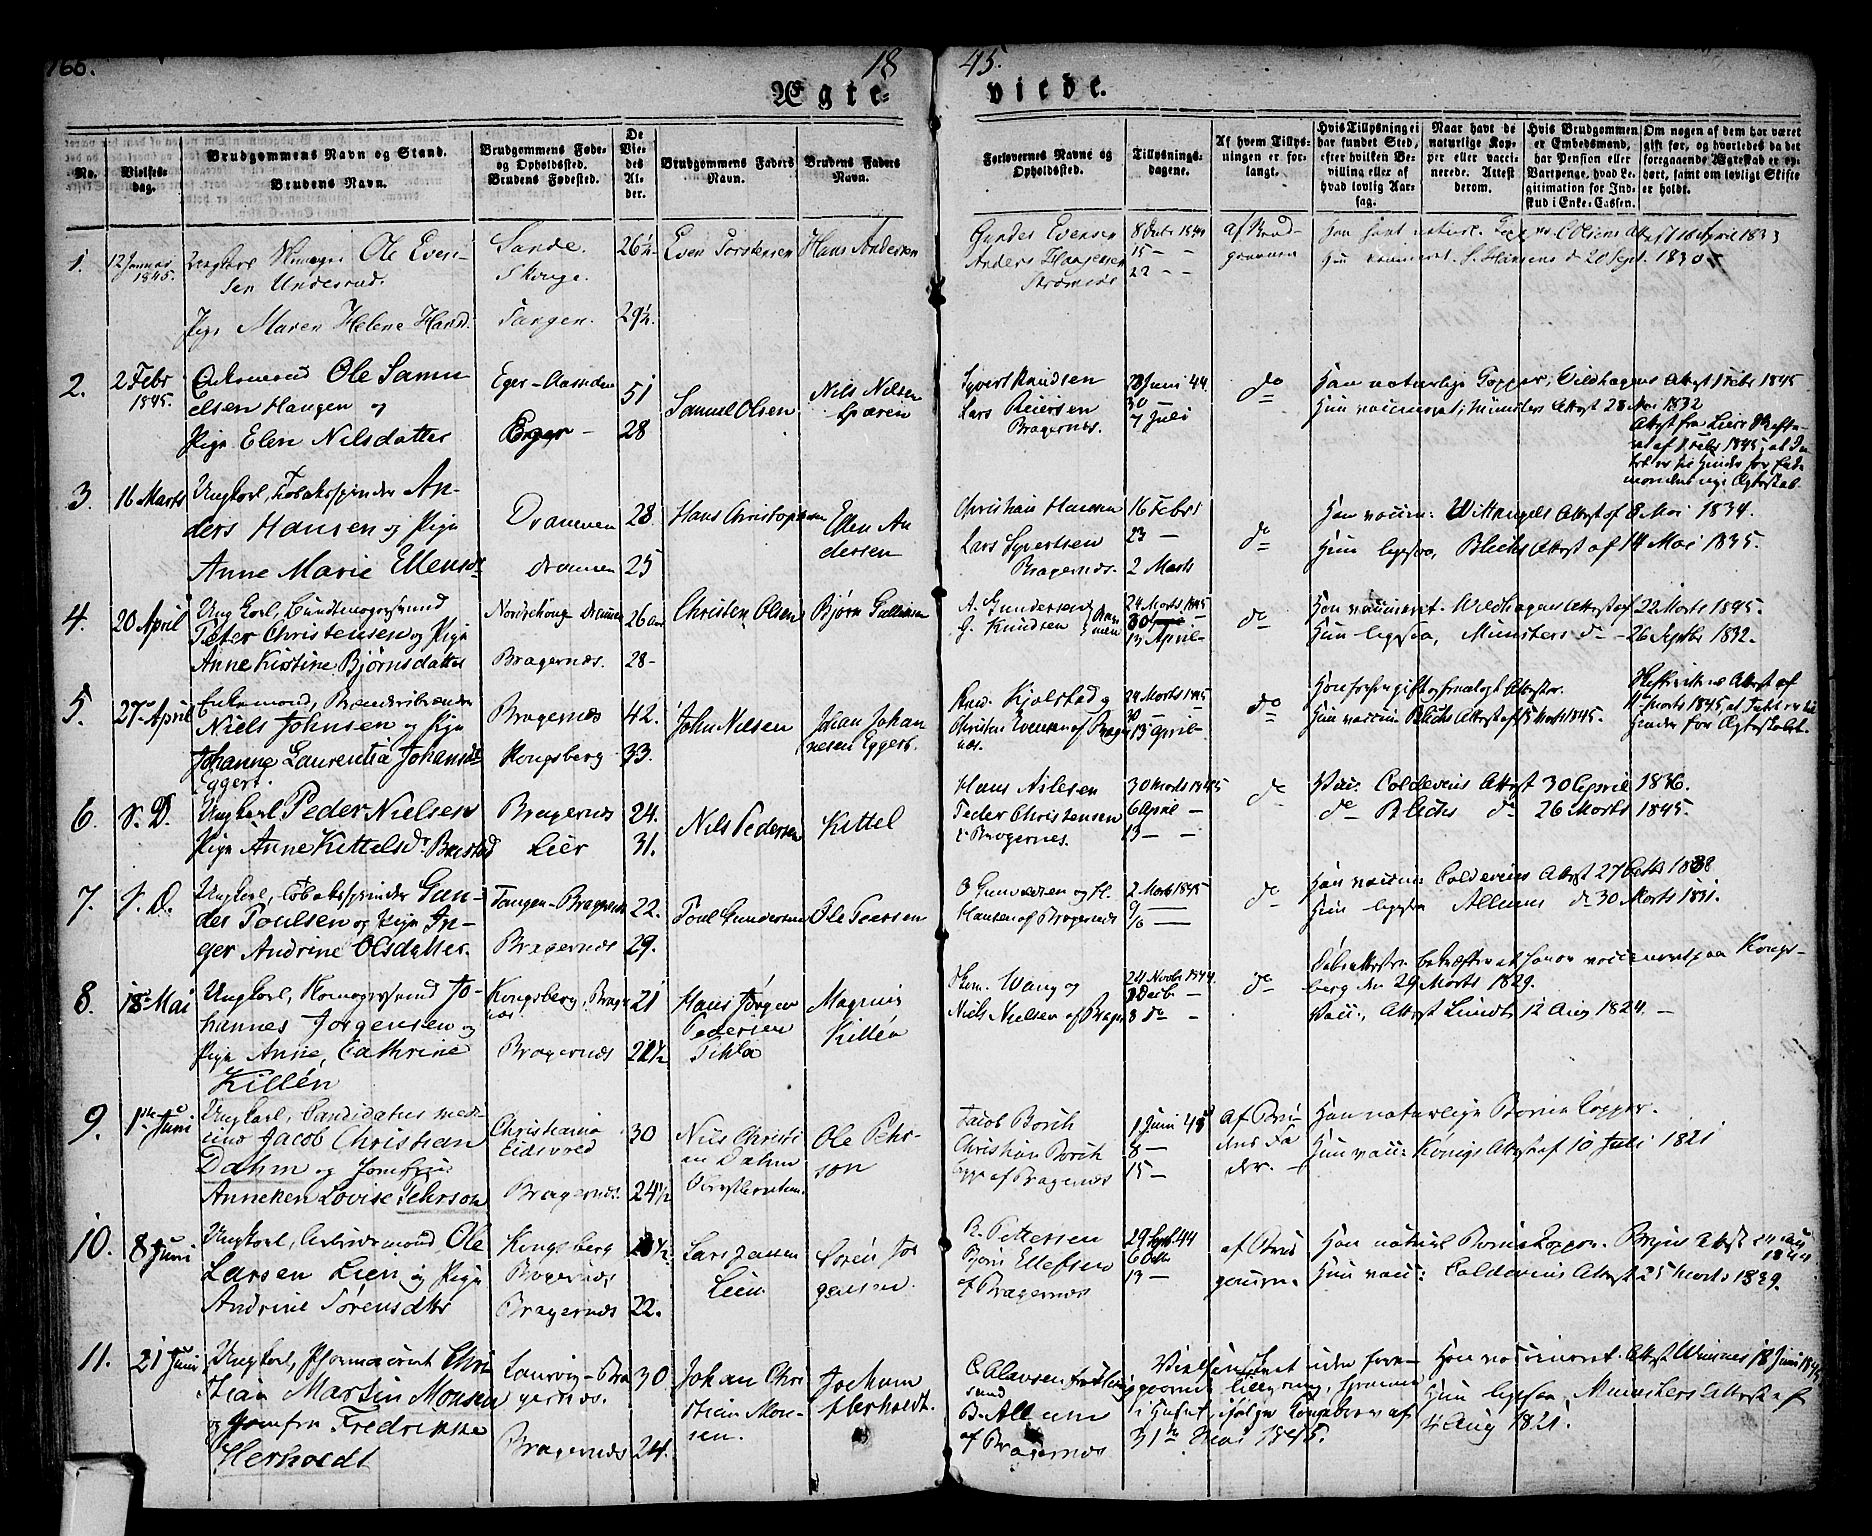 166.
18
45.
Ægte=
viede.
No.
Vielses=
dag.
Brudgommens Navn og Stand.
Brudens Navn.
Brudgommens Føde=
og Opholdssted.
Brudens Fødested.
De
Vie=
des
Al=
der.
Brudgommens Faders
Navn.
Brudens Faders
Navn.
Forlovernes Navne og
Opholdssted.
Tillysnings=
dagene.
Af hvem Tillys=
ningen er for=
langt.
Hvis Tillysning ei
har fundet Sted,
efter hvilken Be=
villing eller af
hvad lovlig Aar=
sag.
Naar havt de
naturlige Kop=
per eller vacci=
nerede. Attest
derom.
Hvis Brudgommen
er Embedsmand,
har Pension eller
Vartpenge, hvad Le=
gitimation for Ind=
skud i Enke=Cassen.
Om nogen af dem har været
gift før, og hvorledes da det
foregaaende Ægteskab er op=
hørt, samt om lovligt Skifte
er holdt.
1.
12 Januar
1845.
Ungkarl Ole Even=
sen Underud.
Pige Maren Helene Hansd.
Sande.
Skouge.
Tangen.
26½
29½.
Even Torstensen
Hans Andersen
Gunder Evensen
Anders Haagensen
Strømsøe
8 Decbr 1844
15 - -
22 - -
af Brud=
gommen
Han havt naturl. Kopper Attest 16 April 1833
Hun vaccineret. S. Hansens d 20 Sept. 1830
2.
2 Febr
1845.
Enkemand Ole Samu
elsen Haugen og
Pige Elen Nilsdatter
Eger-Aamden
Eger -
51
28
Samuel Olsen
Nils Nilsen
Sparen
Syvert Knudsen
Lars Reiersen
Bragernæs.
23 Juni 44
30 -
7 Juli
do
Han naturlige Kopper, Vildhagens Attest 1 Febr 1845
Hun vaccineret, Münsters Attest 28 Mai 1832
Attest fra Liers Skifte=
ret af 1 Febr 1845, at In=
tet er til Hinder for Enke=
mandens nye Ægteskab.
3.
16 Marts
Ungkarl, Tobaksspinder An=
ders Hansen og Pige
Anne Marie Ellensdr
Drammen
Drammen
28
25
Hans Christophersen
Ellen An
dersen
Christian Hansen
Lars Syvertsen
Bragernæs.
16 Febr
23 -
2 Marts
do
Han vaccin: Wittrugels Attest af 8 Mai 1834.
Hun ligesaa, Blechs Attest af 14 Mai 1835.
4.
20 April
Ungkarl,
Peter Christensen og Pige
Anne Kistine Bjørnsdatter
Drammen
Bragernæs.
26 Aar
28-
Christen Olsen
Bjørn Gullersen
A. Gundersen
G. Knudsen
24 Marts 1845
30
13 April-
do
Han vaccineret. Wildhagens Attest af 22 Marts 1845.
Hun ligesaa, Münsters do - 26 Septbr 1832.
5.
27de April
Enkemand,
Niels Johnsen og Pige
Johanne Laurentia Johansdr
Eggert.
Bragernæs
Kongsberg
42.
33.
John Nielsen
Johan Johan
nesen Eggert.
Knud Kjølstad og
Christen Evensen af Brager
næs.
24 Marts 1845
30 -
13 April-
do
Han før gift
Hun vaccin Blechs Attest af 15 Marts 1845.
Skifterettens Attest af
11te Marts 1845 at Intet er til
Hinder for Ægteskabet.
6.
S. D.
Ungkarl Peder Nielsen
Pige Anne Kittelsdr Bustad
Bragernæs
Lier
24.
31.
Nils Pedersen
Kittel
Hans Nilsen
Peder Christensen
i Bragernæs.
30 Marts 1845
6 April -
13 - -
do
Vac: Coldevins Attest 30 April 1836.
do Blechs do 26 Marts 1845.
7.
S. D.
Ungkarl, Tobaksspinder Gun=
der Poulsen og Pige In=
ger Andrine Olsdatter.
Tangen-Bragernæs
Bragernæs
22.
29.
Poul Gundersen
Ole Peersen
O Gundersen og H.
Hansen af Bragernæs
2 Marts 1845
9 -
16 -
do
Han vaccin: Coldevins Attest 27 Octbr 1838
Hun ligesaa Allums do 30 Marts 1831.
8.
18de Mai
Ungkarl, Jo=
hannes Jørgensen og
Pige Anne, Cathrine
Killén
Kongsberg, Brager
næs
Bragernæs
21
21½
Hans Jørgen
Pedersen
Magnus
Killén
Wang og
Niels Nielsen af Brager
24 Novbr 1844
1 Decb -
8 do -
do
Døbeattesten bekræfter at han er vaccineret paa Kongs=
berg den 29 Marts 1829.
Vacc:, Attest Lundts 12 Aug 1824. -
9.
1ste Juni
Ungkarl, Candidatus medi
cinæ Jacob Christian
Dahm og Jomfrue
Anneken Lovise Pehrson
Christiania
Eidsvold
Bragernæs
30
24½
Nils Christi
an Dahm
Ole Pehr-
son
Jacob Borch
Christian Borch
begge af Bragernæs
1 Juni 45
8 -
15 -
af Bru
dens Fa
der. -
Han naturlige Børnekopper.
Hun vacc: Königs Attest af 10 Juli 1821
10.
8 Juni
Ungkarl, Arbeidsmand, Ole
Larsen Lien og Pige
Andrine Sørensdtr
Kongsberg
Bragernæs
Bragernæs
22.
Lars Jansen
Lien
Søren Jør
gensen.
B. Pettersen
Bjørn Ellefsen
af Bragernæs
29 Sept 44
6 Octbr
13 -
af Brud
gommen
Han naturl Børnekopper. Bryns Attest
1844
Hun vacc: Coldevins Attest 25 Marts 1839.
11.
21 Juni
Ungkarl, Pharmaceut Chri
stian Martin Monsen
og Jomfru Fredrikke
Herholdt
Laurvig-Bra
gernæs.
Bragernæs
30
24.
Johan Chri
stian Mon-
sen.
Jochum
Herholdt.
C. Clausen
B. Allum
af Bragernæs
Vielsen skeet uden fore=
gaaende Tillysning, hjemme
i Huset ifølge Kongebrev af
31te Mai 1845.
Han vaccineret. Attest Winnes 18 Juni 1845
Hun ligesaa, Münsters Attest af
4 Aug 1821.